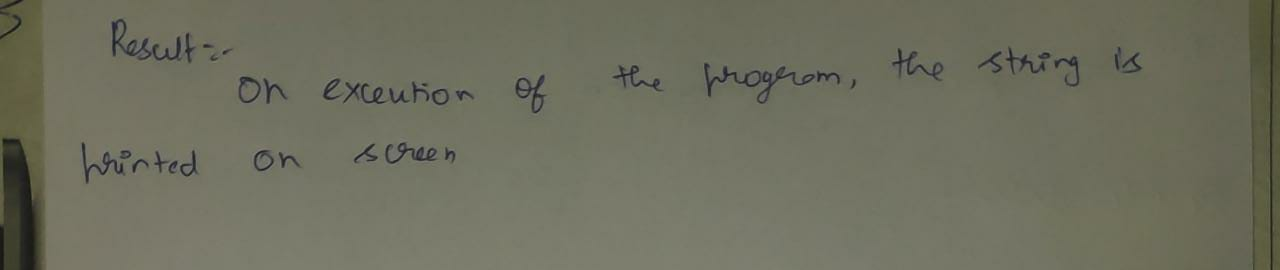 Result :-
On exceution of the program, the string is
printed on screen